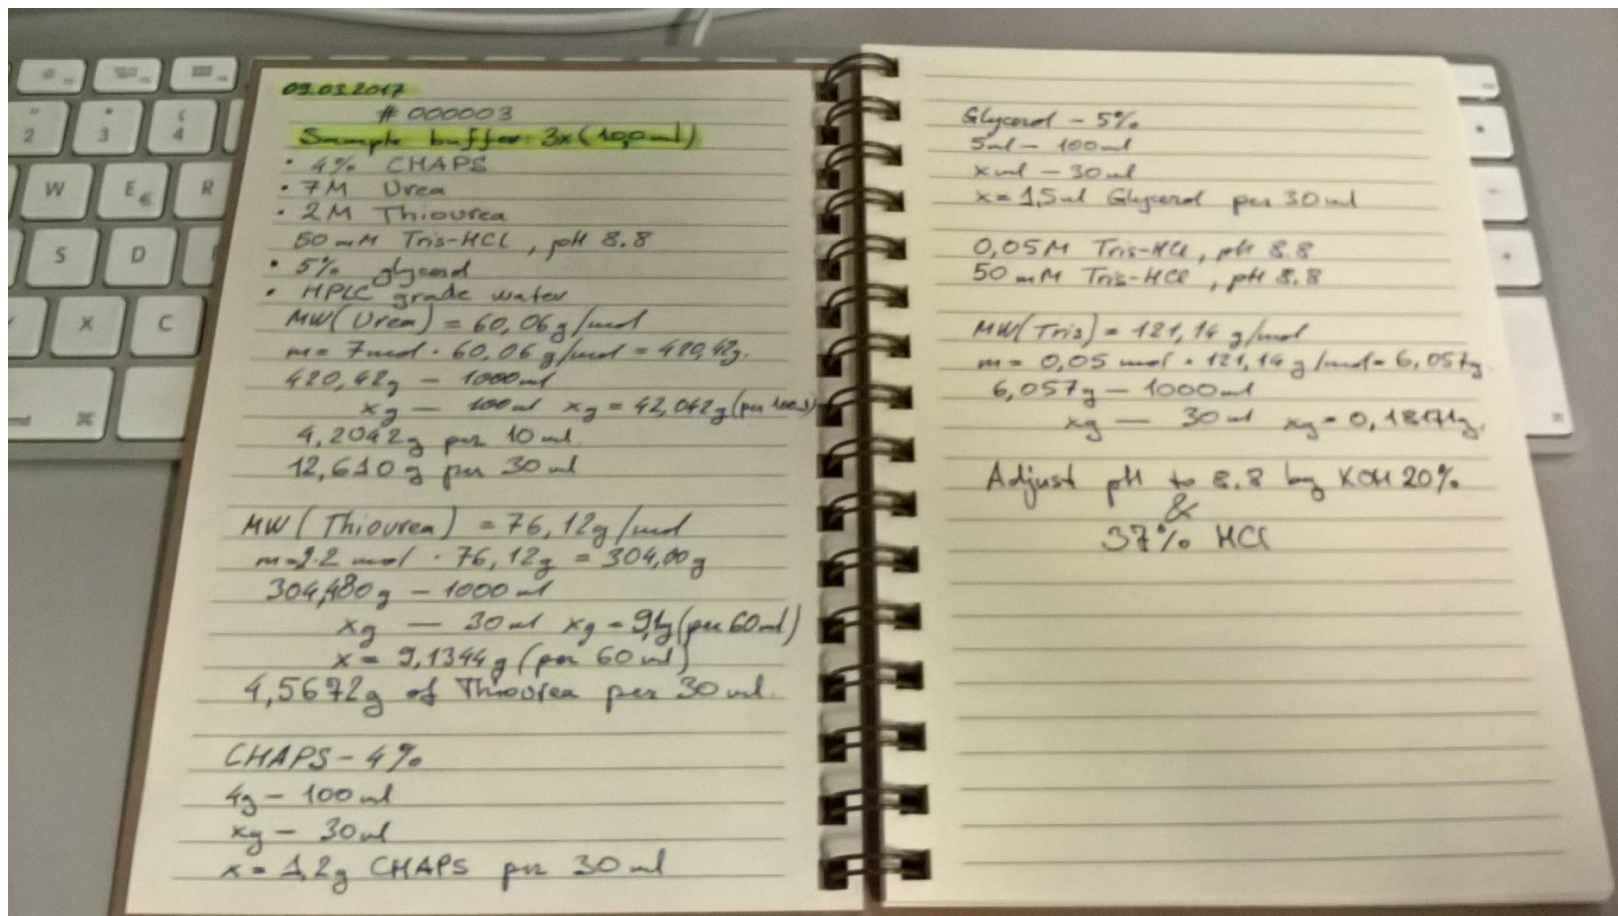 09.03.2017
# 000003
Sample buffer: 3x (10,0ml)
• 4% CHAPS
• 7M Urea
• 2M Thiourea
50 mM Tris-HCl, pH 8.8
• 5% glycerol
• HPLC grade water
MW(Urea) = 60,06 g/mol
m= 7mol · 60,06 g/mol = 420,42g.
420,42g – 1000ml
xg — 100ml xg = 42,042g (per 100ml)
4,2042g per 10 ml
12,610g per 30 ml
MW (Thiourea) = 76,12g/mol
m=2.2 mol · 76,12g = 304,00g
304,480g – 1000ml
xg — 30ml xg = 9,1g (per 60ml)
x = 9,1344g (per 60 ml)
4,5672g of Thiourea per 30 ml.
CHAPS – 4%
4g – 100ml
xg – 30ml
x = 1,2g CHAPS per 30 ml
Glycerol – 5%
5ml – 100ml
xml – 30ml
x = 1,5ml Glycerol per 30ml
0,05M Tris-HCl, pH 8.8
50 mM Tris-HCl, pH 8.8
MW(Tris) = 121,14 g/mol
m= 0,05 mol · 121,14 g/mol = 6,057g.
6,057g – 1000ml
xg — 30 ml xg = 0,18171g.
Adjust pH to 8.8 by KOH 20%
&
37% HCl
2
3
4
W
E
€
R
S
D
X
C
⌘